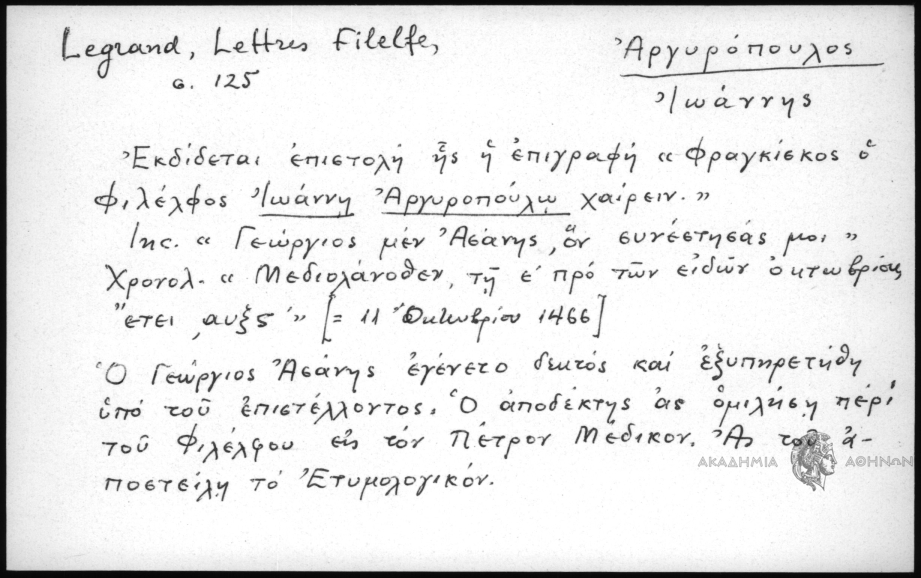 Legrand, Lettres Filelfe,
σ. 125
Ἀργυρόπουλος
Ἰωάννης
Ἐκδίδεται ἐπιστολή ἧς ἡ ἐπιγραφή « Φραγκίσκος ὁ
Φιλέλφος Ἰωάννῃ Ἀργυροπούλῳ χαίρειν. »
Inc. « Γεώργιος μέν Ἀσάνης, ὅν συνέστησάς μοι »
Χρονολ. « Μεδιολάνοθεν, τῇ ε΄ πρό τῶν εἰδῶν ὀκτωβρίας
ἔτει ͵αυξς΄» [= 11 Ὀκτωβρίου 1466]
Ὁ Γεώργιος Ἀσάνης ἐγένετο δεκτός καί ἐξυπηρετήθη
ὑπό τοῦ ἐπιστέλλοντος. Ὁ ἀποδέκτης ἄς ὁμιλήσῃ περί
τοῦ Φιλέλφου εἰς τόν Πέτρον Μέδικον. Ἄς τοῦ ἀ-
ποστείλῃ τό Ἐτυμολογικόν.
ΑΚΑΔΗΜΙΑ ΑΘΗΝΩΝ